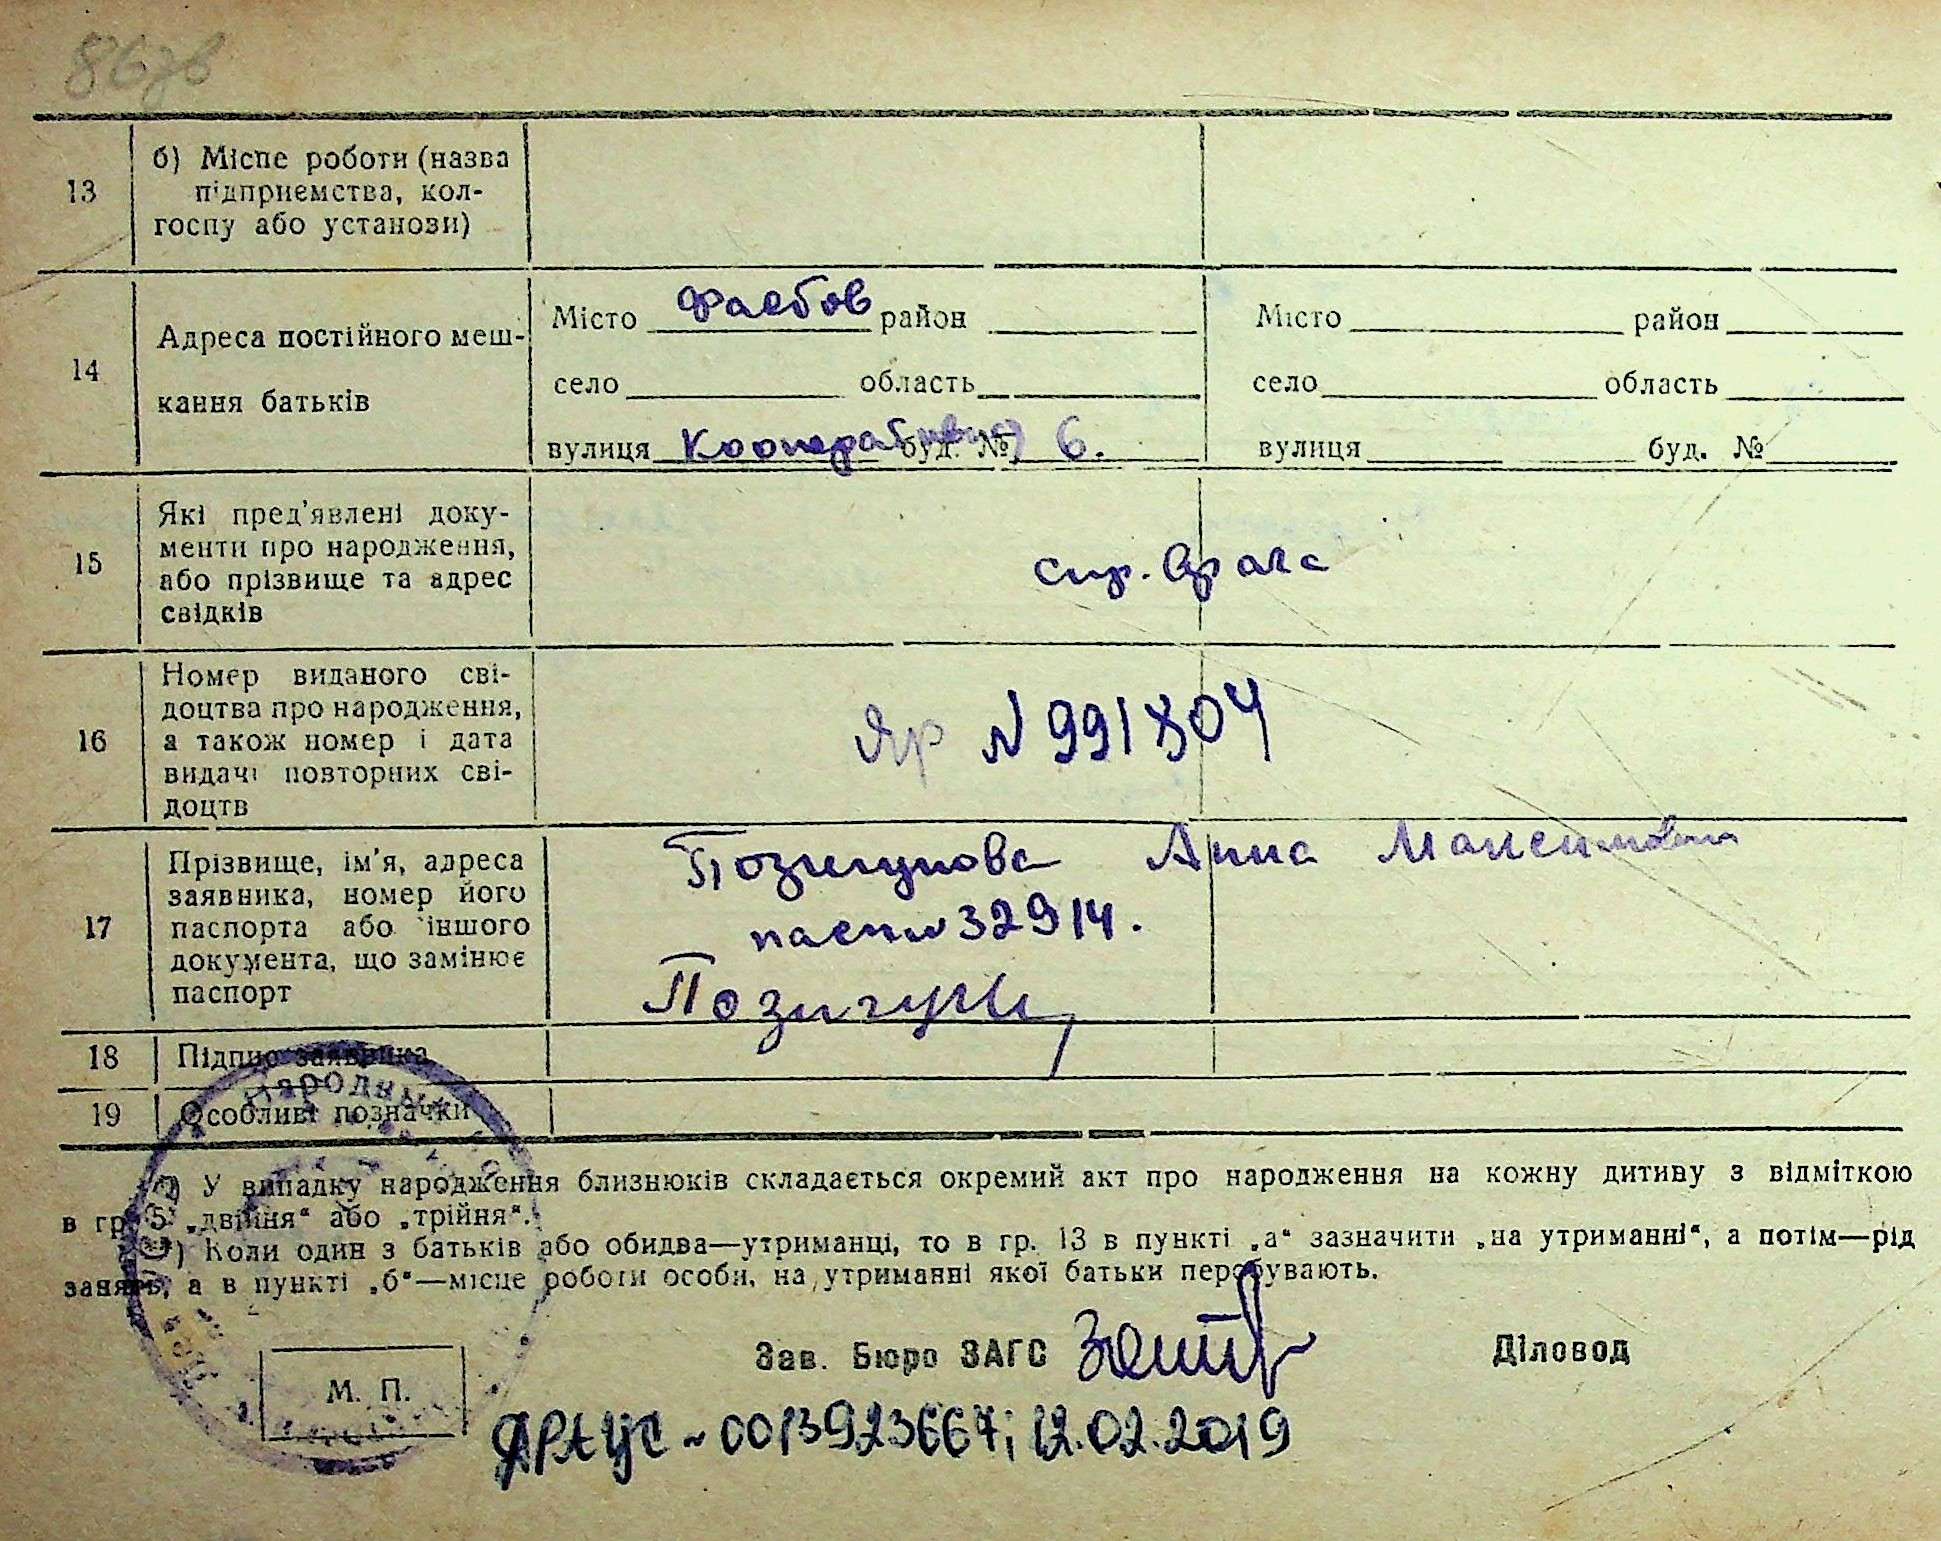 13
б) Місце роботи (назва
підприємства, кол-
госпу або установи)
14
Адреса постійного меш-
кання батьків
Місто Фастов район
село область
вулиця Кооперативная буд. № 6.
Місто район
село область
вулиця буд. №
15
Які пред'явлені доку-
менти про народження,
або прізвище та адрес
свідків
спр. врача
16
Номер виданого сві-
доцтва про народження,
а також номер і дата
видачі повторних сві-
доцтв
Яр N 991804
17
Прізвище, ім'я, адреса
заявника, номер його
паспорта або іншого
документа, що замінює
паспорт
Анна Максимовна
32914.
18
Підпис заявника
19
Особливі позначки
*) У випадку народження близнюків складається окремий акт про народження на кожну дитину з відміткою
в гр. 5 „двійня“ або „трійня“.
**) Коли один з батьків або обидва—утриманці, то в гр. 13 в пункті „а“ зазначити „на утриманні“, а потім—рід
занять, а в пункті „б“—місце роботи особи, на утриманні якої батьки перебувають.
Зав. Бюро ЗАГС
Діловод
М. П.
ДРАЦС ~ 0013923667; 12.02.2019